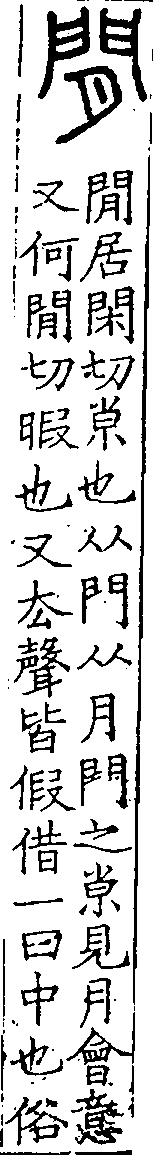 閒
閒居閑切𡭴也从門从月門之𡭴見月會意
又何閒切暇也又厺聲皆假借一曰中也俗